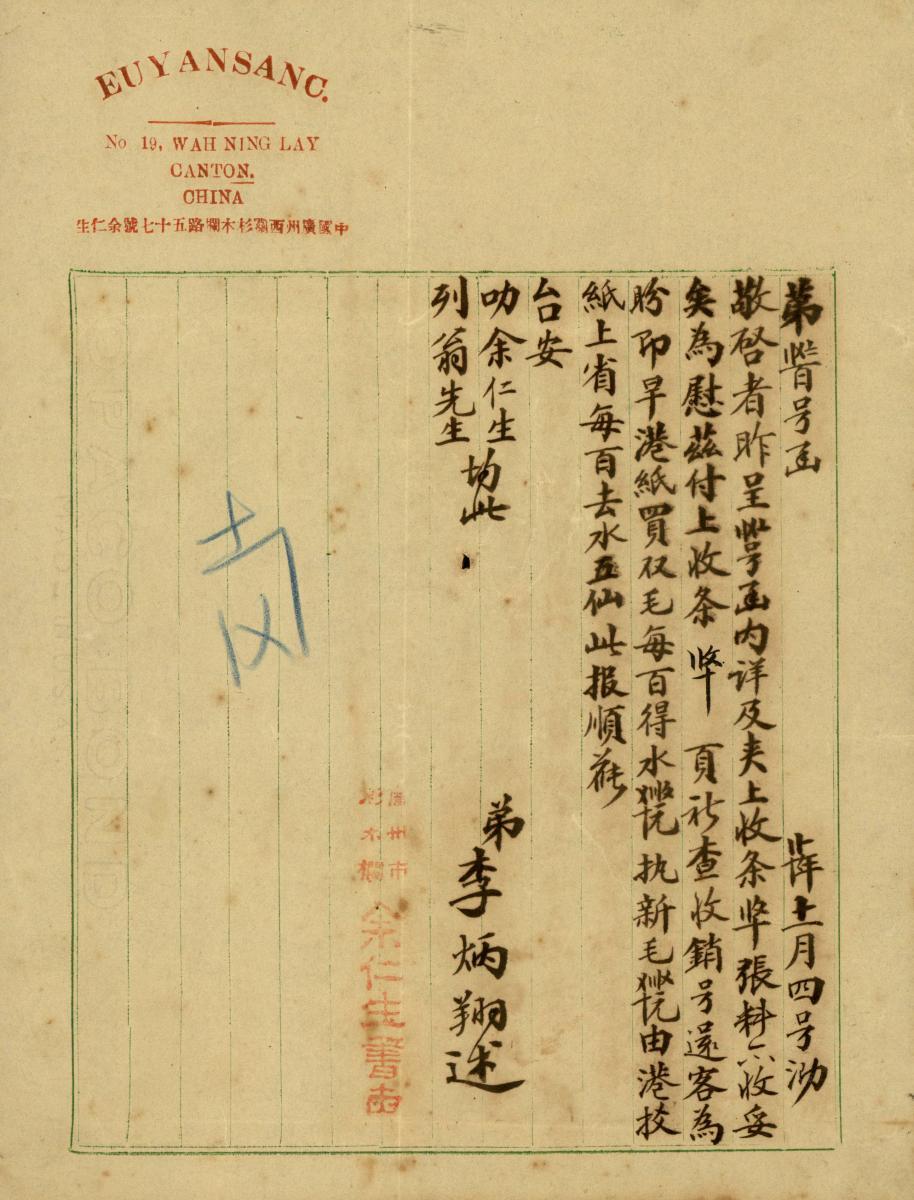 EUYANSANG.
No 19, WAH NING LAY
CANTON.
CHINA
中國廣州西關杉木欄路五十七號余仁生
第 号函
年十二月四号泐
敬啓者昨呈 号函内详及夹上收条 張料亦收妥
矣為慰茲付上收条 頁祈查收銷号還客為
盼印早港紙買双毛每百得水 执新毛 由港按
紙上省每百去水五仙此报順候
台安
叻余仁生
列翁先生
均此
弟李炳翔述
廣州市
杉木欄
余仁生書柬